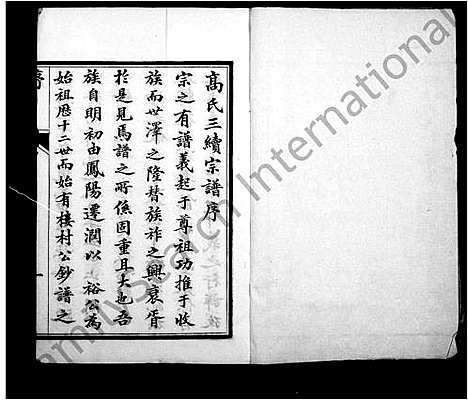 高氏三續宗譜序
宗之有譜義起于尊祖功推于收
族而世澤之隆替族祚之興衰胥
於是見焉譜之所係固重且大也吾
族自明初由鳳陽遷潤以　裕公為
始祖歷十二世而始有樓村公鈔譜之
FamilySearch International